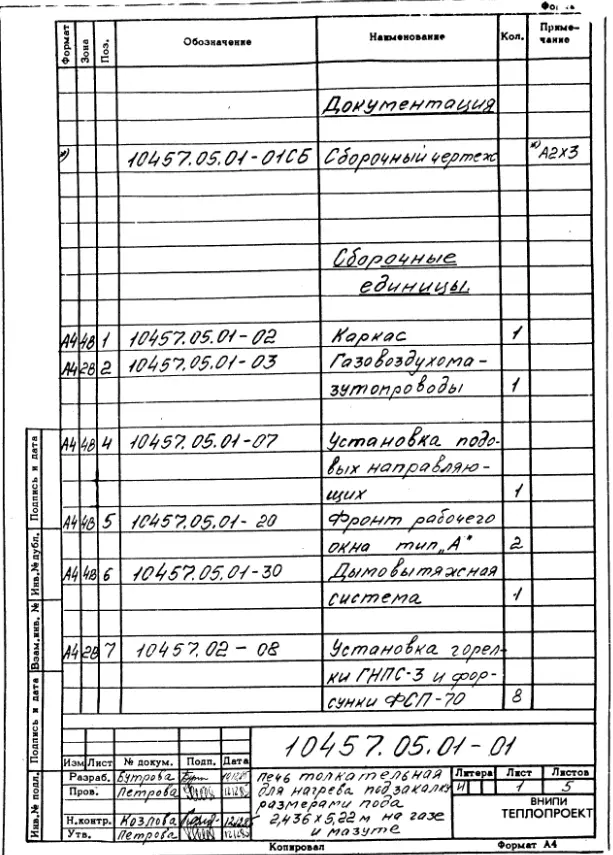 Формат Зона Поз. Обозначение Наименование Кол. Приме-
чание
Документация
*) 10457.05.01-01СБ Сборочный чертеж *) А2х3
Сборочные
единицы.
А4 4В 1 10457.05.01-02 Каркас 1
А4 2В 2 10457.05.01-03 Газовоздухома-
зутопроводы 1
А4 4В 4 10457.05.01-07 Установка подо-
вых направляю-
щих 1
А4 4В 5 10457.05.01-20 Фронт рабочего
окна тип „А" 2
А4 4В 6 10457.05.01-30 Дымовытяжная
система 1
А4 2В 7 10457.02-08 Установка горел-
ки ГНПС-3 и фор-
сунки ФСП-70 8
Подпись и дата
Инв.№ дубл.
Взам.инв. №
Подпись и дата
Инв.№ подл.
10457.05.01-01
Изм Лист № докум. Подп. Дата
Разраб. Бутрова
Пров. Петрова
Н.контр. Козлова
Утв. Петрова
печь толкательная
для нагрева под закалку
размерами пода
2,436х5,22м на газе
и мазуте
Литера Лист Листов
И 1 5
ВНИПИ
ТЕПЛОПРОЕКТ
Копировал Формат А4